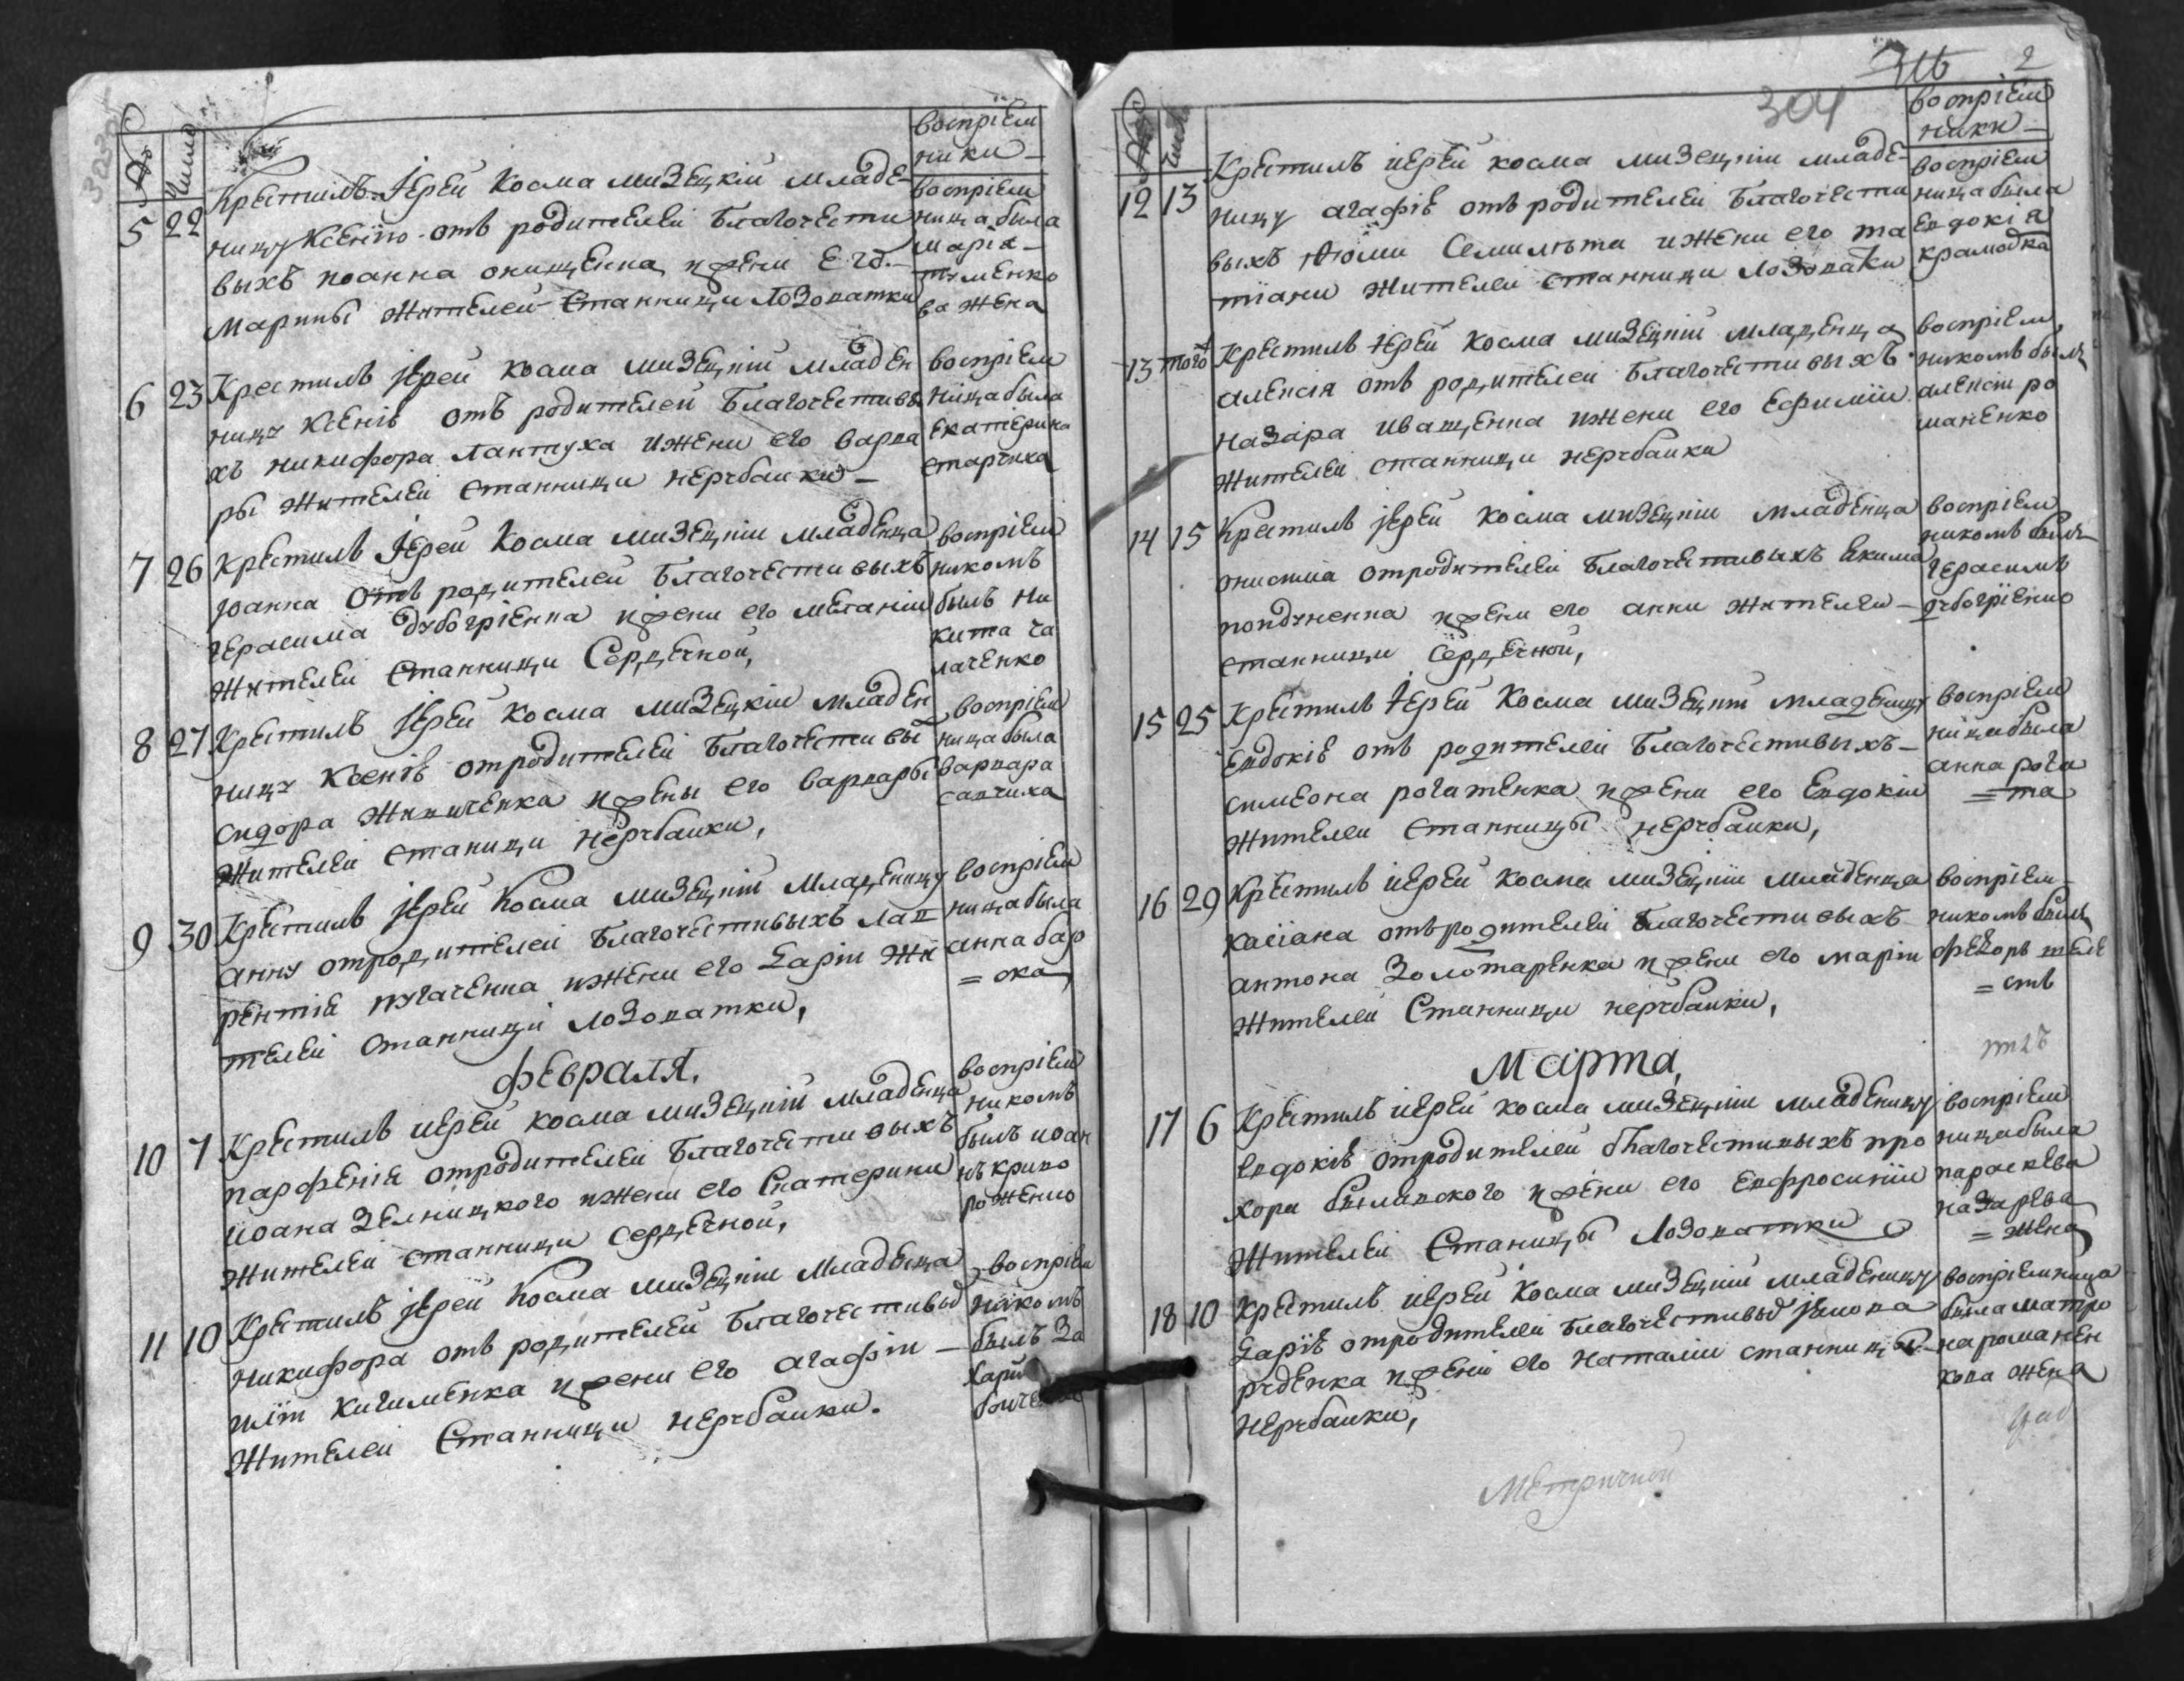 воспрiем
ники
Число
5 22 Крестилъ Iерей Косма Мизецкiй младе-
ницу Ксенiю отъ родителей Благочести
выхъ иоанна онищенка ижени Его
Марины жителей Станници Лозоватки
воспрiем
ница была
Марiя
ва жена
6 23 Крестилъ iерей Косма Мизецкiй младен
ницу Ксенiѣ отъ родителей Благочестивы
хъ никифора Лантуха ижени его варва
ры жителей Станници нерубайки
воспрiем
ница была
Екатерина
7 26 Крестилъ Iерей Косма Мизецкiй младенца
Iоанна отъ родителей Благочестивыхъ
герасима дубогрiенка ижени его меланiи
жителей Станници Сердечной,
воспрiем
никомъ
былъ ни
кита га
лаченко
8 27 Крестилъ iерей Косма Мизецкiй младен
ницу Ксенiѣ отродителей Благочестивы
сидора ижены его варвары
жителей станици нерубайки,
воспрiем
ница была
варвара
савчиха
9 30 Крестилъ iерей Косма Мизецкiй младеницу
анну отродителей Благочестивыхъ лав
рентiя пугаченка ижени его Дарiи жи
телей станници лозоватки,
воспрiем
ница была
анна бар
= ска
февраля,
10 7 Крестилъ иерей косма мизецкiй младенца
парфенiя отродителей Благочестивыхъ
иоана Зелницкого ижени его Екатерини
жителей станници сердечной,
воспрiем
никомъ
былъ иоан
нъ криво
роженко
11 10 Крестилъ iерей Косма мизецкiй младенца
никифора отъ родителей Благочестивых
ижени его агафiи
жителей Станници нерубайки.
воспрiем
никомъ
былъ За
хари
2
304
воспрiем
ники
12 13 Крестилъ иерей косма мизецкiй младе-
ницу агафiѣ отъ родителей Благочести
выхъ Фоми Семилѣта ижени его та
тiани жителей станници лозоватки
воспрiем
ница была
Евдокiя
крамодка
13 того Крестилъ Iерей косма мизецкiй младенца
алексiя отъ родителей Благочестивыхъ
назара иващенка ижени его Ефимiи
жителей станници нерубайки
воспрiем
никомъ былъ
алексiй ро
маненко
14 15 Крестилъ iерей косма мизецкiй младенца
онисима отродителей Благочестивыхъ Екима
ижени его анни жителей
станници Сердечной,
воспрiем
никомъ былъ
герасимъ
дубогрiенко
15 25 Крестилъ Iерей Косма мизецкiй младеницу
Евдокiѣ отъ родителей Благочестивыхъ
симеона рогатенка ижени его Евдокiи
жителей станницы нерубайки,
воспрiем
ница была
анна рога
= та
16 29 Крестилъ иерей косма мизецкiй младенца
касiана отъ родителей Благочестивыхъ
антона Золотаренка ижени его марiи
жителей Станници нерубайки,
воспрiем
никомъ былъ
феѡдоръ
Марта,
17 6 Крестилъ иерей косма мизецкiй младеницу
Евдокiѣ отродителей благочестивыхъ про
хора ижени его Ефросинiи
жителей Станицы Лозоватки
воспрiем
ница была
параскева
назарева
= жена
18 10 Крестилъ иерей косма мизецкiй младеницу
Дарiѣ отродителей Благочестивых iакова
руденка ижени его Наталiи станницы
нерубайки,
воспрiемница
была матро
на романен
кова жена
Метричной